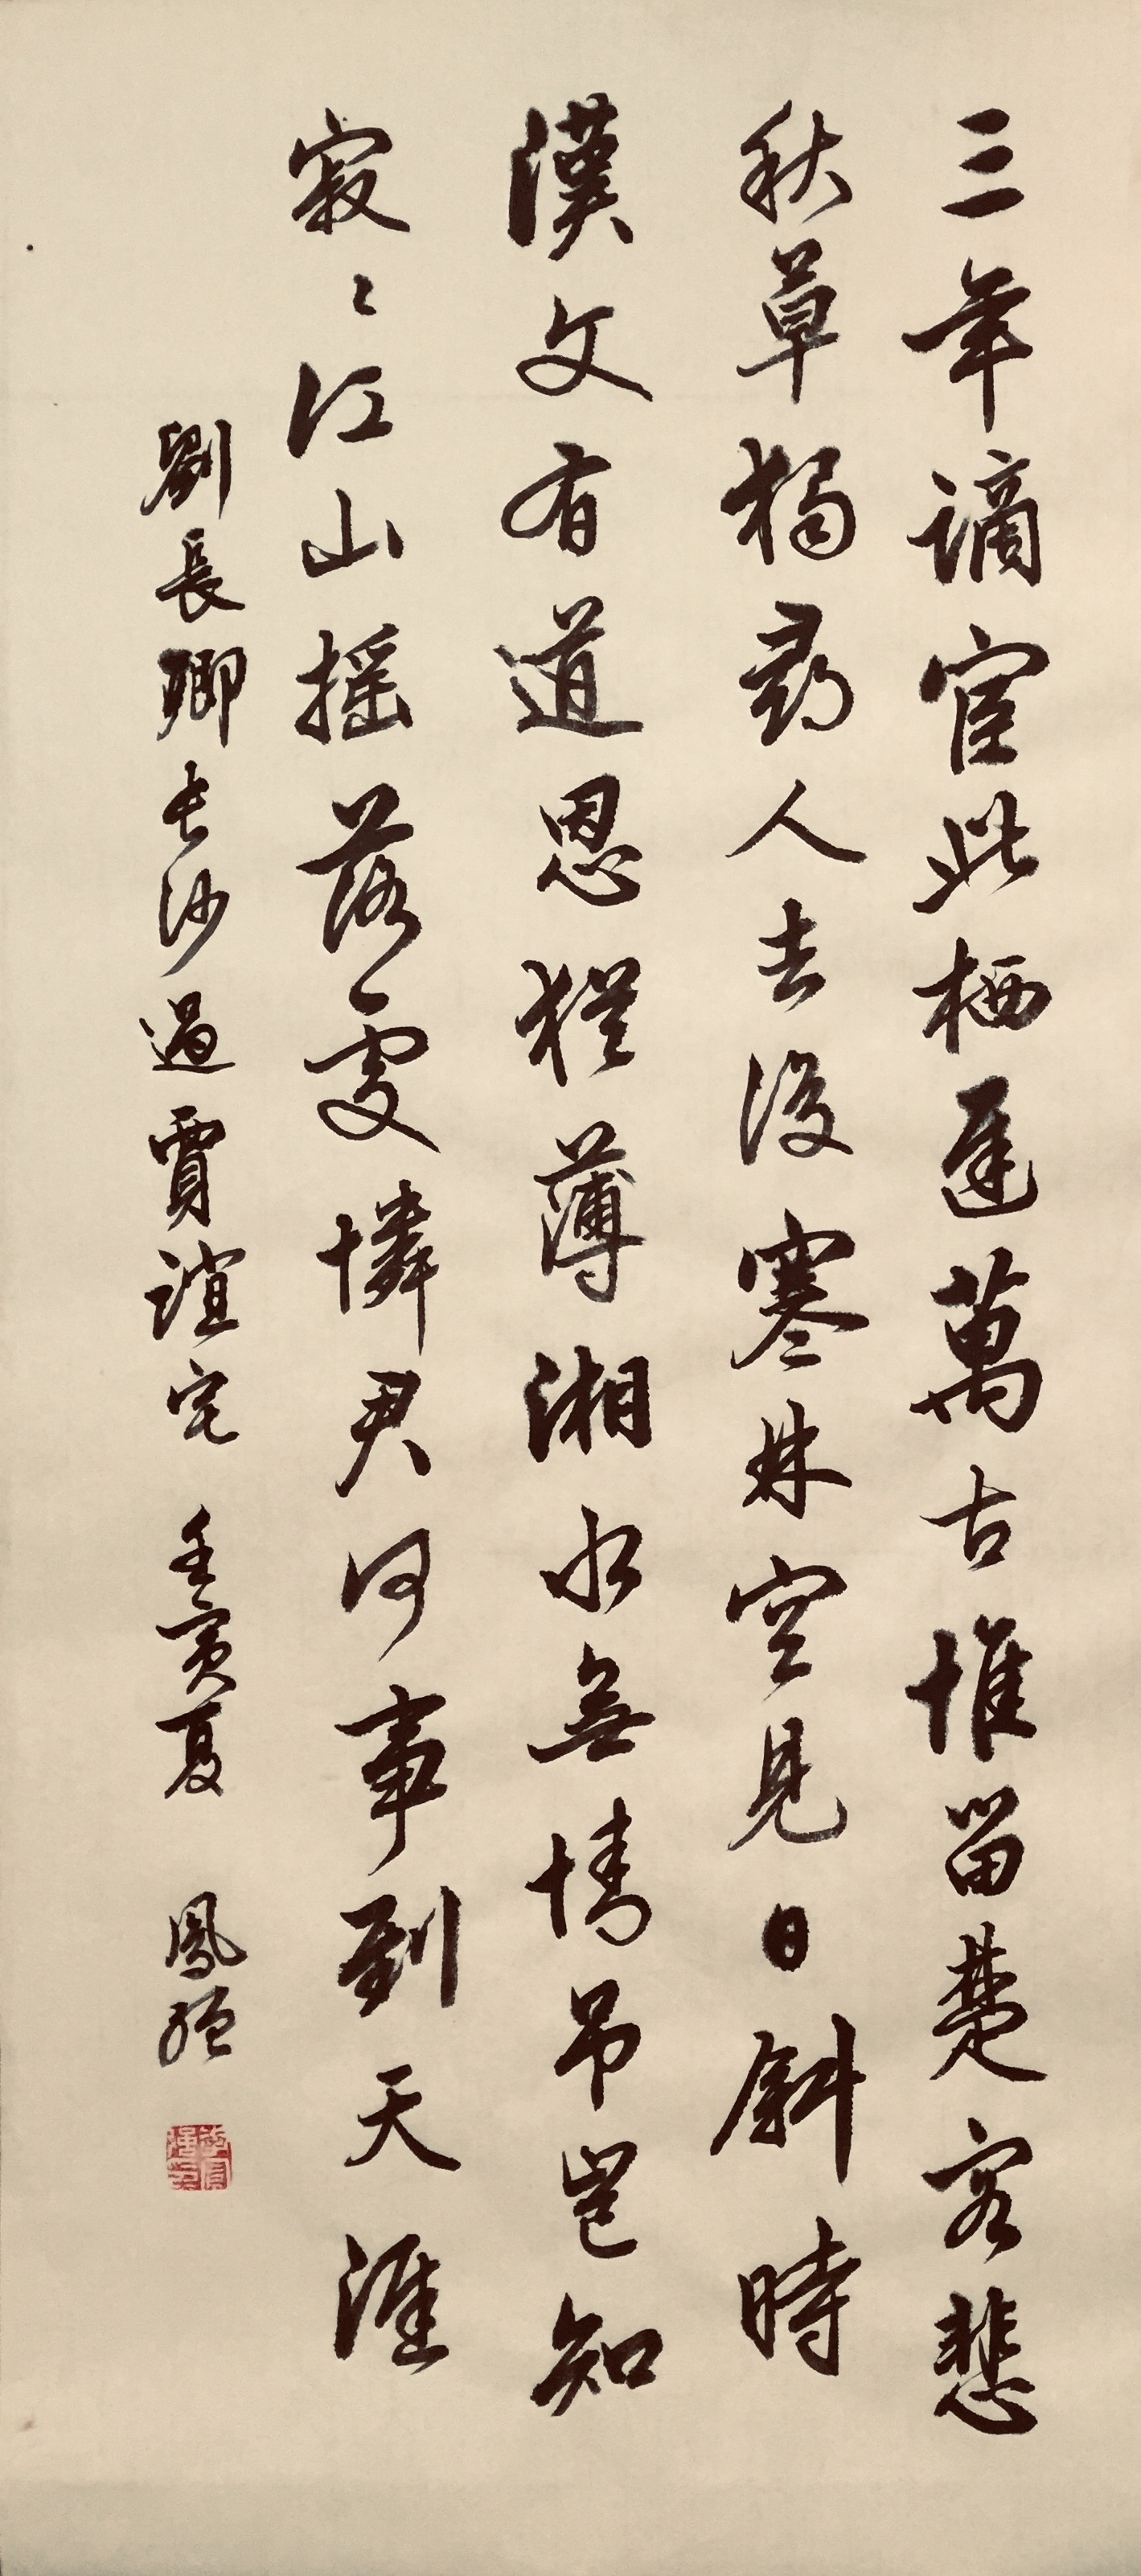 三年謫宦此栖遲萬古惟留楚客悲
秋草獨尋人去後寒林空見日斜時
漢文有道恩猶薄湘水無情吊豈知
寂々江山摇落處憐君何事到天涯
劉長卿長沙過賈誼宅 壬寅夏 鳳強